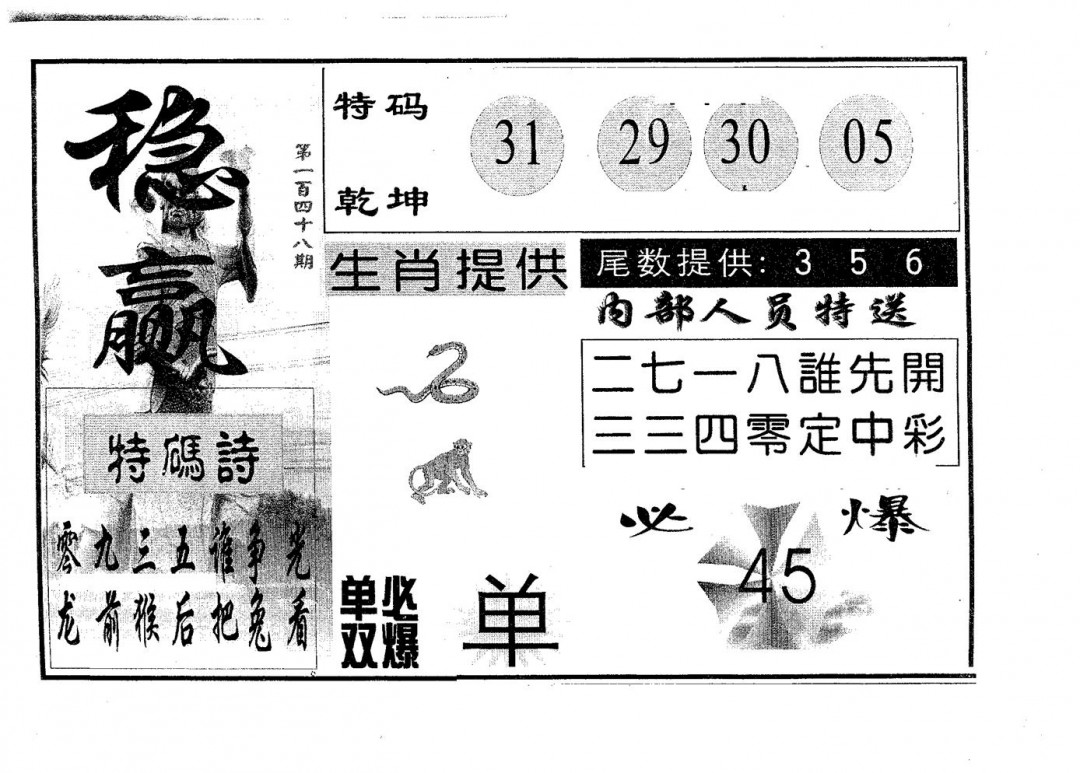 稳赢
第一百四十八期
特码诗
零九三五谁争光
龙前猴后把兔看
特码
乾坤
31 29 30 05
生肖提供
单双必爆
单
尾数提供: 3 5 6
内部人员特送
二七一八誰先開
三三四零定中彩
必爆
45